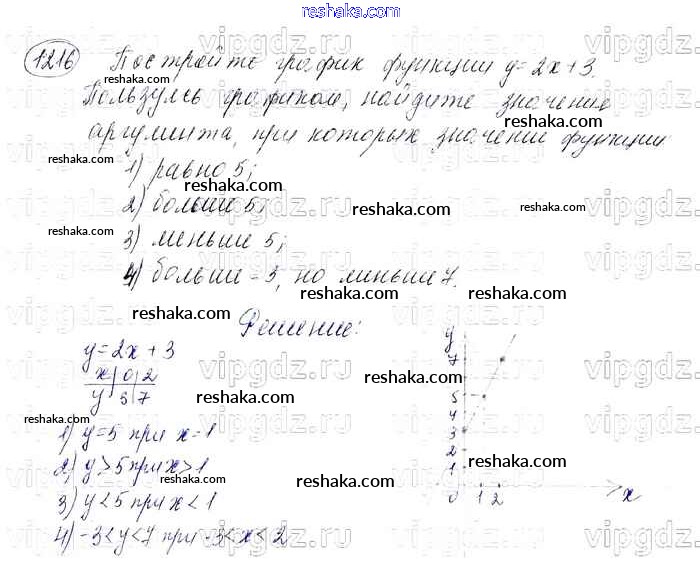 reshaka.com
1216 Постройте график функции y=2x+3.
Пользуясь графиком, найдите значение
аргумента, при которых значение функции
1) равно 5;
2) больше 5;
3) меньше 5;
4) больше -3, но меньше 7.
Решение:
y=2x+3
x 0 2
y 3 7
1) y=5 при x=1
2) y>5 при x>1
3) y<5 при x<1
4) -3<y<7 при -3<x<2
y
7
5
4
3
2
1
0 1 2 x
vipgdz.ru
reshaka.com